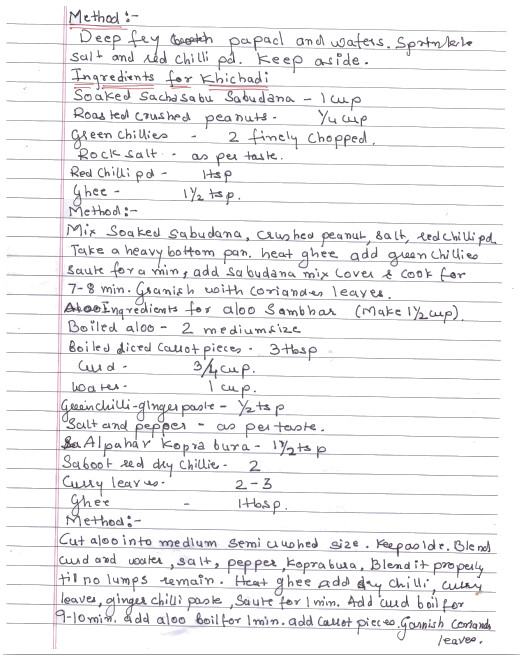 Method:-
Deep fry papad and wafers. Sprinkle
salt and red chilli pd. Keep aside.
Ingredients for Khichadi
Soaked Sachasabu Sabudana - 1 cup
Roasted crushed peanuts - 1/4 cup
Green chillies - 2 finely chopped.
Rock salt - as per taste.
Red chilli pd - 1tsp
Ghee - 1 1/2 tsp.
Method:-
Mix Soaked Sabudana, Crushed peanut, salt, red chilli pd
Take a heavy bottom pan. heat ghee add green chillies
saute for a min, add sabudana mix cover & cook for
7-8 min. Granish with coriander leaves.
Ingredients for aloo Sambhar (Make 1 1/2 cup).
Boiled aloo - 2 medium size
Boiled diced carrot pieces - 3 tbsp
Curd - 3/4 cup.
Water - 1 cup.
Green chilli-ginger paste - 1/2 tsp
Salt and pepper - as per taste.
Alpahar Kopra bura - 1 1/2 tsp
Saboot red dry chillie - 2
Curry leaves - 2-3
Ghee - 1 tbsp.
Method:-
Cut aloo into medium semi crushed size. Keep aside. Blend
curd and water, salt, pepper, kopra bura, Blend it properly
til no lumps remain. Heat ghee add dry chilli, curry
leaves, ginger chilli paste, Saute for 1 min. Add curd boil for
9-10 min. add aloo boil for 1 min. add carrot pieces. Garnish coriander
leaves.